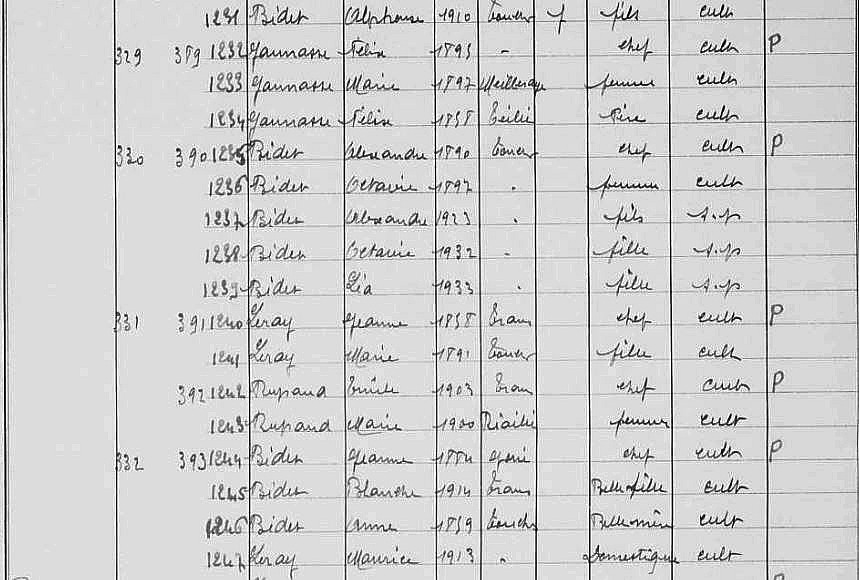 1231 Bidet Alphonse 1910 Touches f fils cult
329 389 1232 Gaunasse Félix 1895 " chef cult P
1233 Gaunasse Marie 1897 Meilleraye femme cult
1234 Gaunasse Félix 1858 Teillé Père cult
330 390 1235 Bidet Alexandre 1890 Touches chef cult P
1236 Bidet Octavie 1897 " femme cult
1237 Bidet Alexandre 1923 " fils s.p
1238 Bidet Octavie 1932 " fille s.p
1239 Bidet Léa 1933 " fille s.p
331 391 1240 Leray Jeanne 1858 Trans chef cult P
1241 Leray Marie 1891 Touches fille cult
392 1242 Rupaud Emile 1903 Trans chef cult P
1243 Rupaud Marie 1900 Riaillé femme cult
332 393 1244 Bidet Jeanne 1884 chef cult P
1245 Bidet Blanche 1914 Trans Belle-fille cult
1246 Bidet Anne 1859 Touches Belle-mère cult
1247 Leray Maurice 1913 " Domestique cult